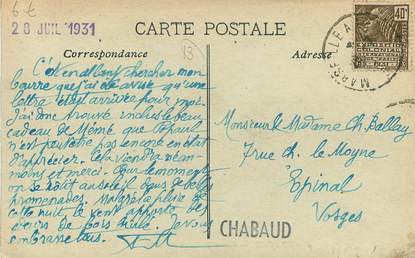 6 t
20 JUIL 1931
CARTE POSTALE
Correspondance
13
Adresse
40c
EXPOSITION
COLONIALE
MARSEILLE
C'est en allant chercher mon
beurre que j'ai été avisé qu'une
lettre était arrivée pour moi.
J'ai donc trouvé inclus le beau
cadeau de Mémé que
n'est peut être pas encore en état
d'apprécier. Cela viendra néan-
moins et merci. Pour le moment
on se rôtit au soleil dans de belles
promenades. Malgré la pluie de
cette nuit le vent apporte des
odeurs de bois brûlé. Je vous
embrasse tous.
Monsieur & Madame Ch. Ballay
7 rue Ch. le Moyne
Epinal
Vosges
CHABAUD